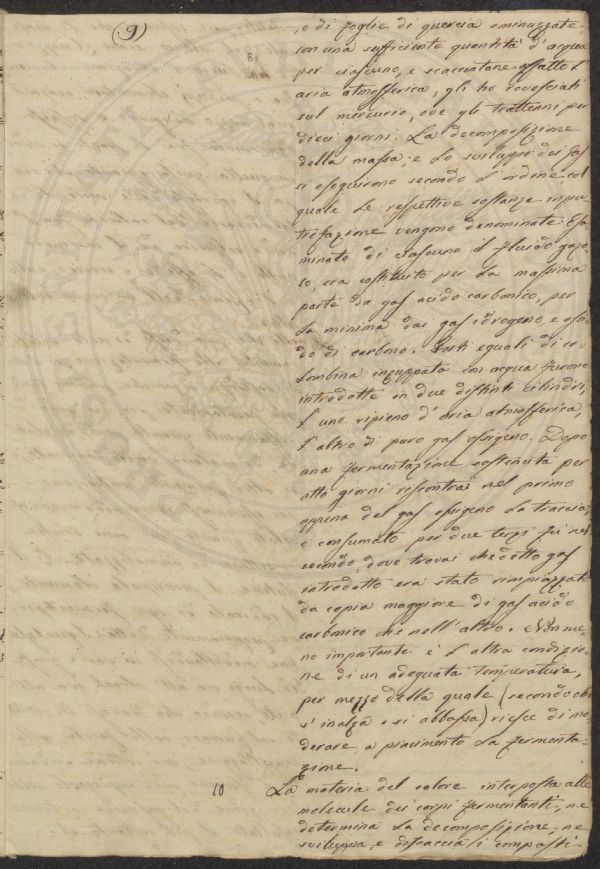 (9)
, e di foglie di quercia sminuzzate,
con una sufficiente quantità d'acqua
per ciascuno, e scacciatane affatto l'
aria atmosferica, gli ho rovesciati
sul mercurio, ove gli trattenni per
dieci giorni. La decomposizione
della massa e lo sviluppo dei gas
si eseguirono secondo l'ordine col
quale le respettive sostanze in pu-
trefazione vengono denominate. Esa-
minato di ciascuno il fluido gazo-
so, era costituito per la massima
parte da gas acido carbonico, per
la minima dai gas idrogeno, e ossi-
do di carbone. Parti eguali di co-
lombina inzuppata con acqua furono
introdotte in due distinti cilindri,
l'uno ripieno d'aria atmosferica,
l'altro di puro gas ossigeno. Dopo
una fermentazione sostenuta per
otto giorni riscontrai nel primo
appena del gas ossigeno la traccia,
e consumato per due terzi fu nel
secondo, dove trovai che detto gas
introdotto era stato rimpiazzato
da copia maggiore di gas acido
carbonico che nell'altro. Non me-
no importante è l'altra condizio-
ne di un adequata temperatura,
per mezzo della quale (secondo che
s'inalza o si abbassa) riesce di mo-
derare a piacimento la fermenta-
zione.
10 La materia del calore interposta alle
molecule dei corpi fermentanti, ne
determina la decomposizione, ne
sviluppa, e discaccia i composti